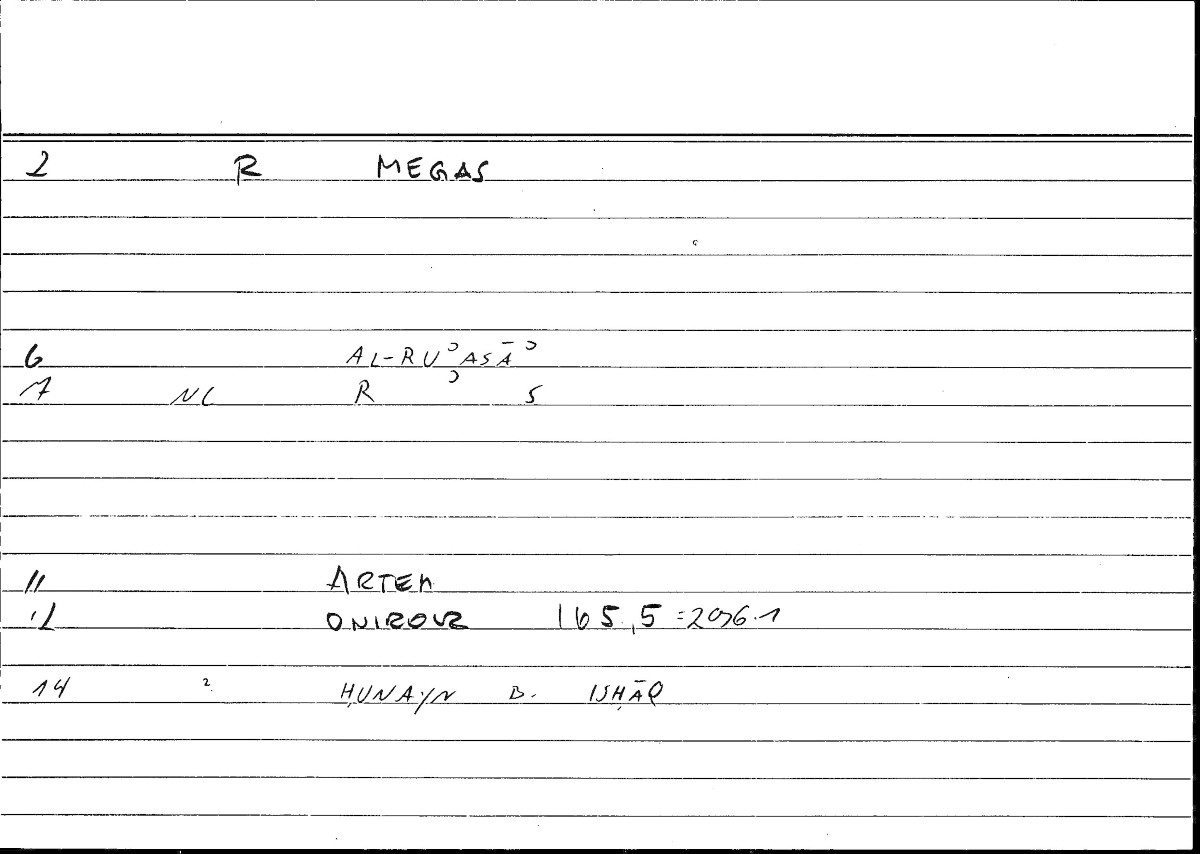 2 R MEGAS
6 AL-RUʾASĀʾ
7 NC R ʾ S
11 ARTEM
12 ONIROCR 165,5 =296.1
14 2 ḤUNAYN B. ISḤĀQ